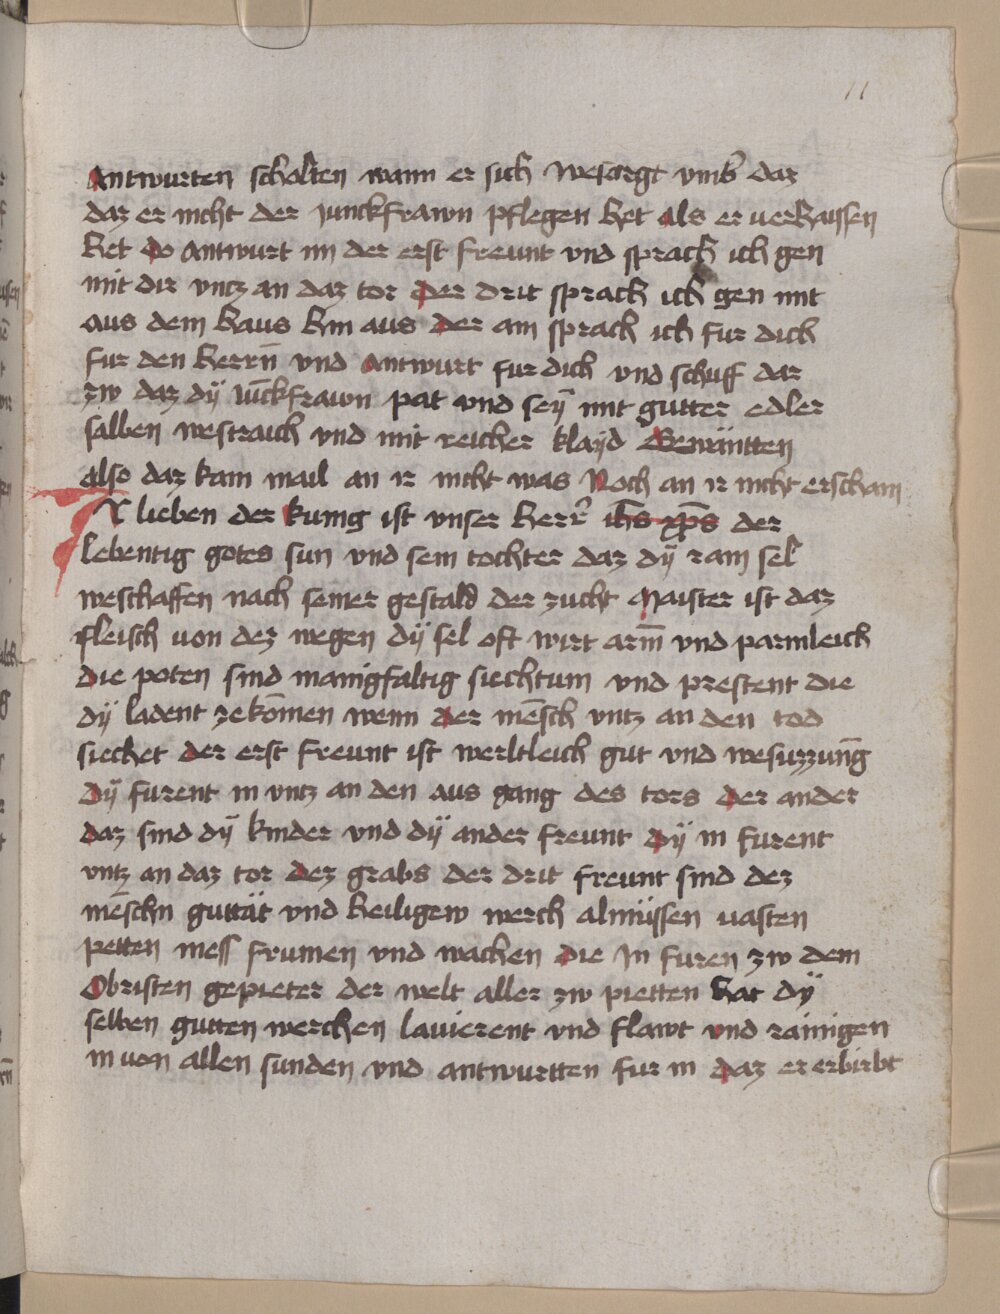 11
Antwurten scholten wann er sich wesorgt vmb daz
daz er nicht der junckfrawn pflegen het als er verhaissen
het do Antwurt im der erst freunt vnd sprach ich gen
mit dir vntz an daz tor Der drit sprach ich gen mit
aus dem haus hin aus der ain sprach ich fur dich
fur den herrn̄ vnd Antwurt fur dich vnd schuff dar
zw daz dÿ iūckfrawn pat vnd seÿ mit gutter edler
salben westraich vnd mit reicher klaÿd
also daz kain mail an ir nicht was Noch an ir nicht erschain
Ir lieben der kunig ist vnser herr̄ ih̄s xp̄s der
lebentig gotes sun vnd sein tochter daz dÿ rain sel
weschaffen nach seiner gestald der zucht Maister ist daz
fleisch von dez wegen dÿ sel oft wirt arm̄ vnd parmleich
die poten sind manigfaltig siechtum vnd prestent die
dÿ ladent zekōmen wenn der mēsch vntz an den tod
siechet der erst freunt ist werltleich gut vnd wesuzzun̄g
dÿ furent in vntz an den aus gang des tors der ander
daz sind dÿ kinder vnd dÿ ander freunt dÿ in furent
vntz an daz tor dez grabs der drit freunt sind dez
mēschn guttät vnd heiligew werch almüssen vasten
petten mess frumen vnd wachen die In furen zw dem
Obristen gepieter der welt aller zw pietten hat dÿ
selben gutten werchen lauierent vnd flawt vnd rainigen
in von allen sunden vnd antwurtten fur in daz er erbirbt